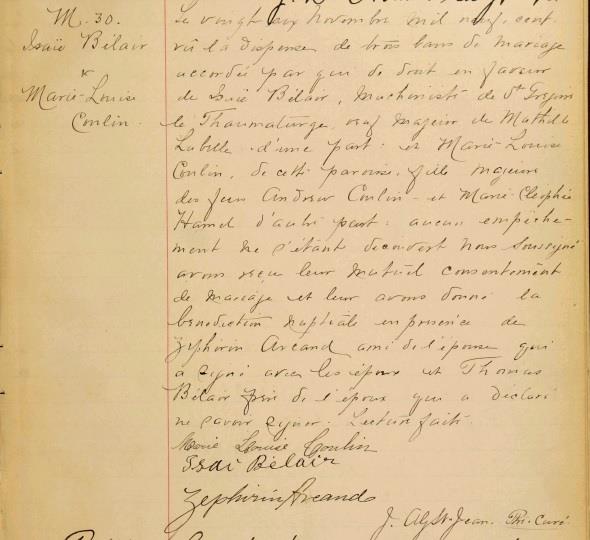 M. 30.
Isaïe Bélair
&
Marie-Louise
Conlin.
Le vingt six Novembre mil neuf cent
vû la dispense de trois bans de mariage
accordée par qui de droit en faveur
de Isaïe Bélair, Machiniste de St Grégoire
le Thaumaturge, veuf majeur de Mathilde
Labelle d'une part: et Marie-Louise
Conlin, de cette paroisse, fille majeure
des feus Andrew Conlin et Marie-Cléophie
Hamel d'autre part: aucun empêche-
ment ne s'étant découvert nous soussigné
avons reçu leur mutuel consentement
de mariage et leur avons donné la
bénédiction nuptiale en présence de
Zéphirin Arcand ami de l'épouse qui
a signé avec les époux et Thomas
Bélair frère de l'époux qui a déclaré
ne savoir signer. Lecture faite.
Marie Louise Conlin
Isai Bélair
Zephirin Arcand
J. Alp. St-Jean. Ptr. Curé.